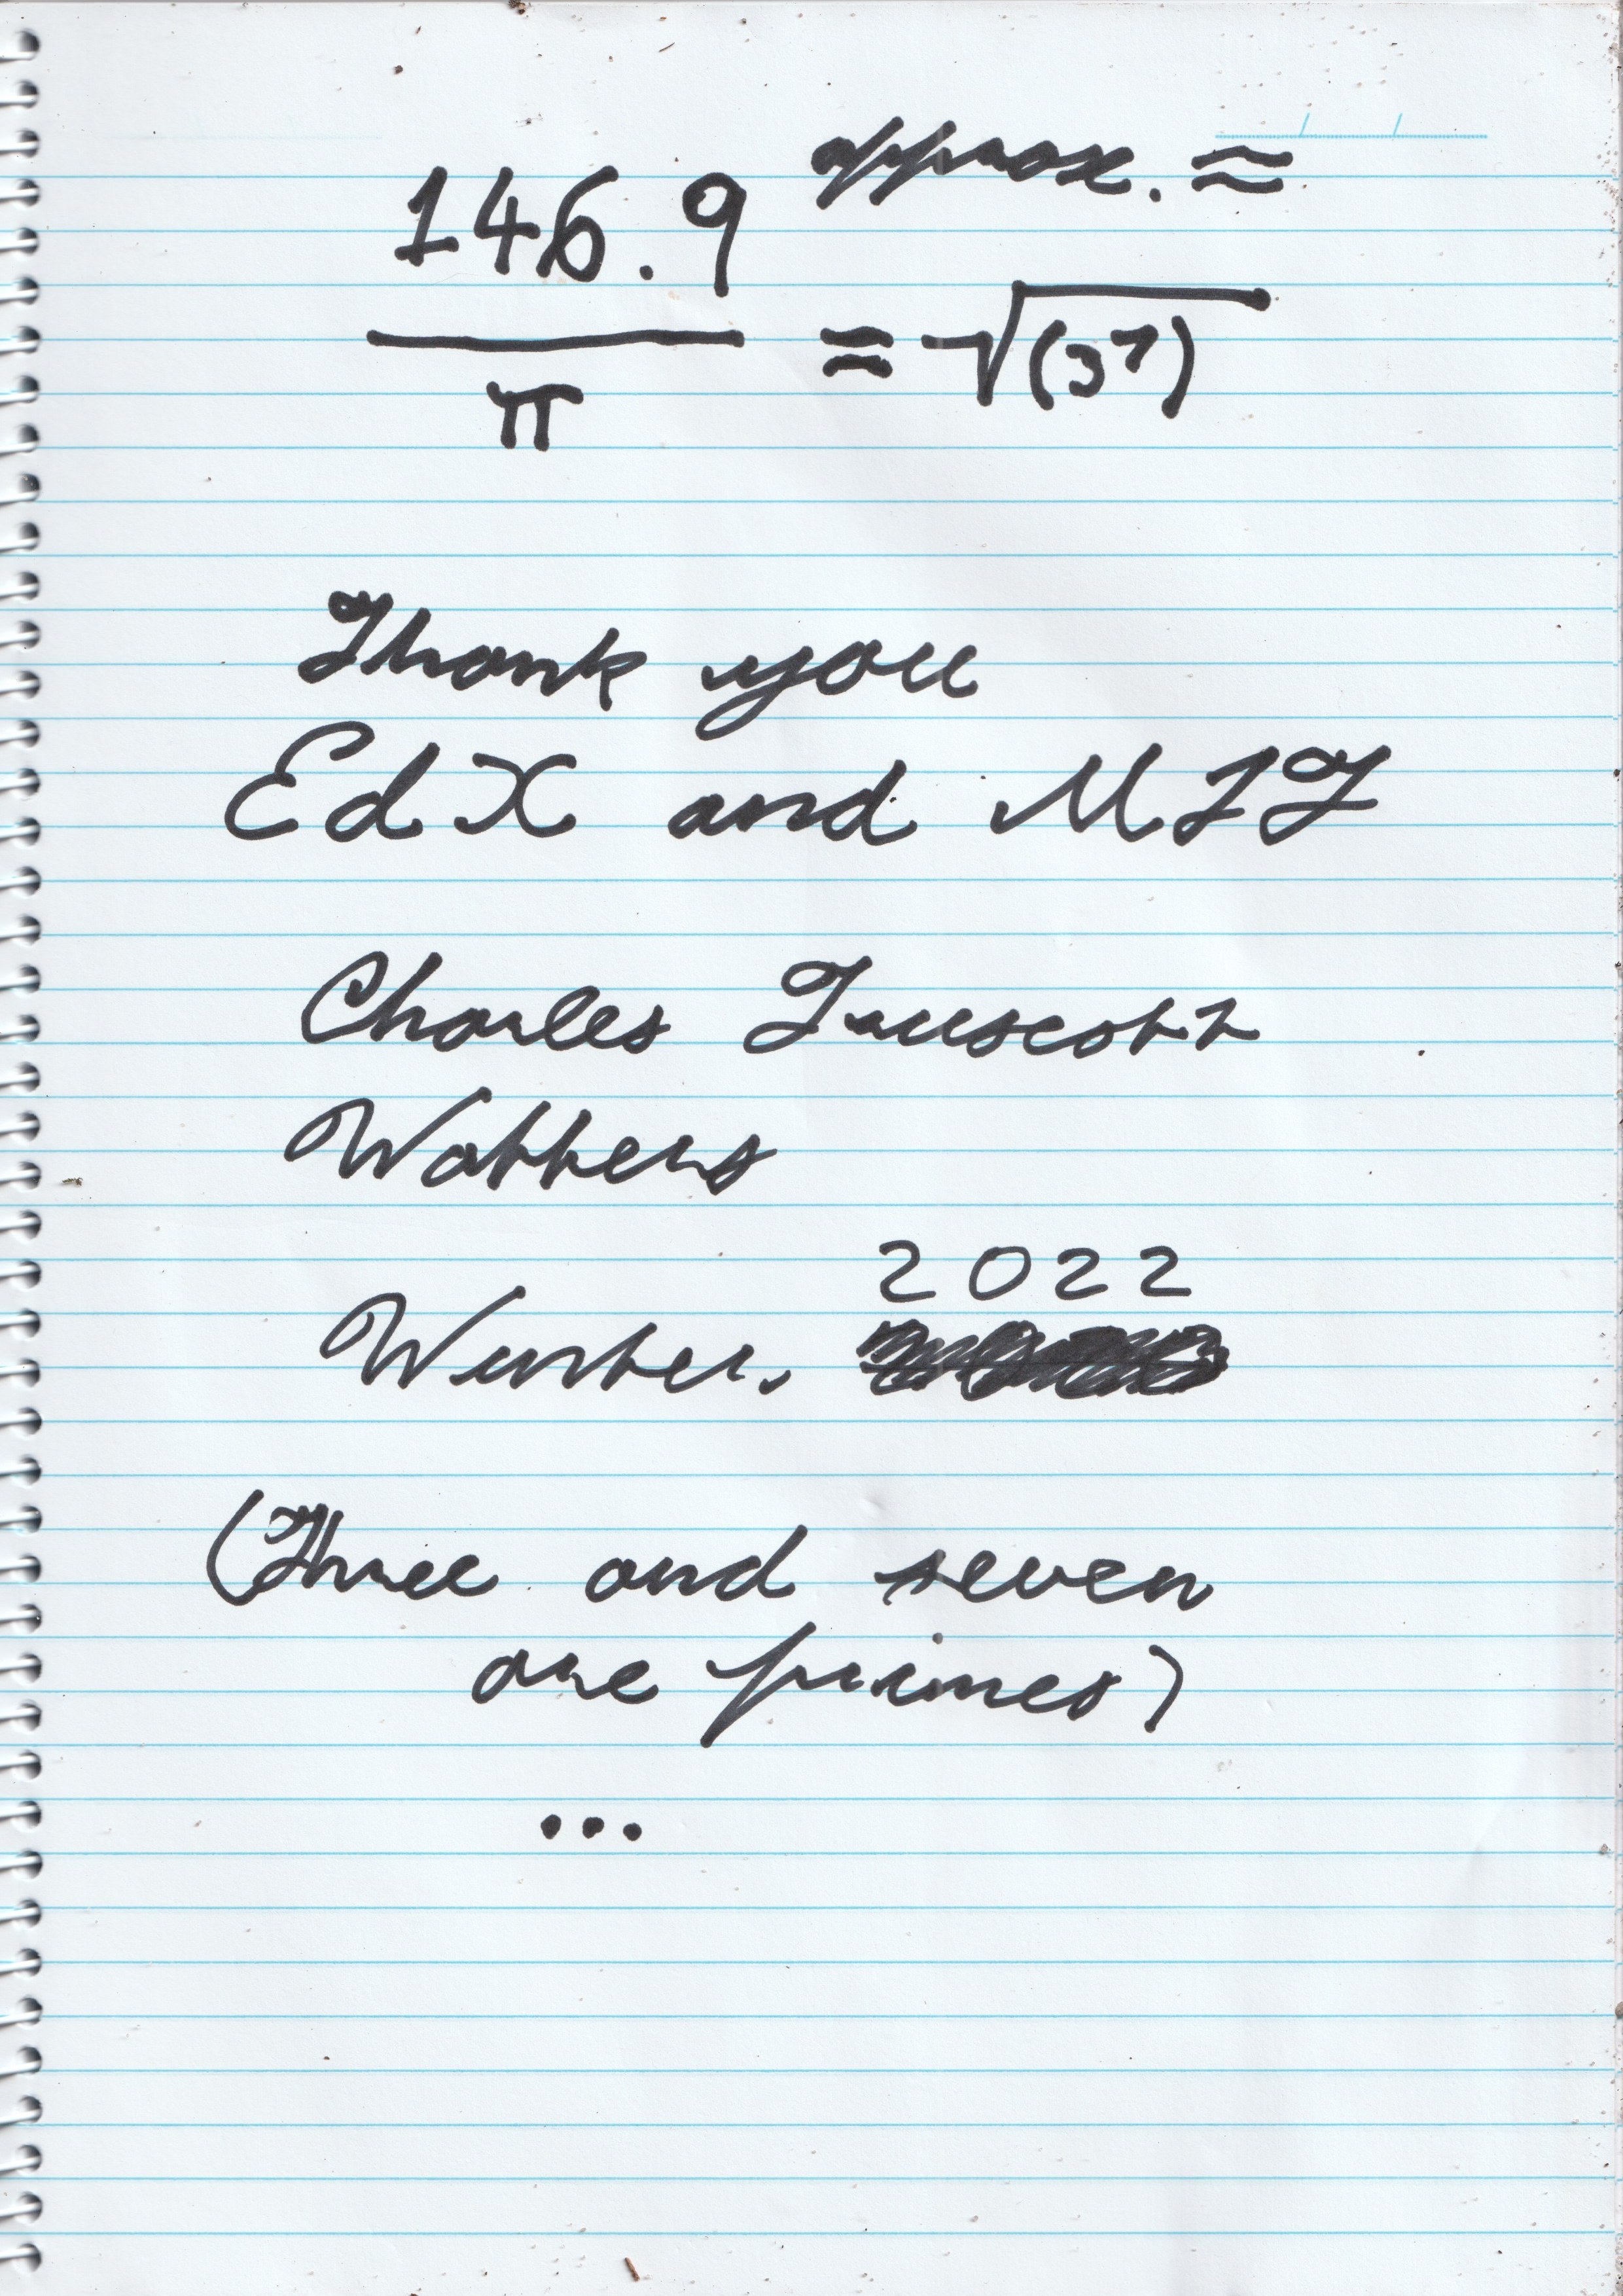 approx. ≈
146.9
π
= √(3⁷)
Thank you
EdX and MIT
Charles Truscott
Watters
2022
Winter.
(Three and seven
are primes)
...